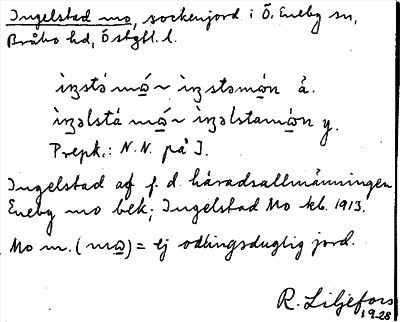 Ingelstad mo, sockenjord i Ö. Eneby sn,
Bråbo hd, Östgtl. l.
ìŋstá mω̄́ ~ ìŋstamω̄n ä.
ìŋəlstá mω̄́ ~ ìŋəlstamω̄n y.
Prepk.: N.N. på I.
Ingelstad af f. d. häradsallmänningen
Eneby mo bek; Ingelstad Mo kb. 1913.
Mo m. (mω̄) = ej odlingsduglig jord.
R. Liljefors
1928